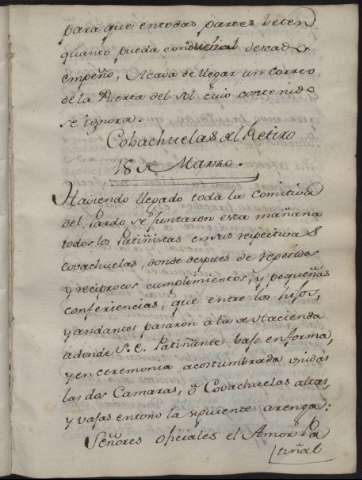 para que en todas partes beten
quanto pueda conducir al desead
empeño, Acava de llegar un correo
de la Puerta del Sol cuio contenido
se ignora.
Cobachuelas del Retiro
18 de Marzo.
Haviendo llegado toda la Comitiva
del Pardo se juntaron esta mañana
todos los Patiñistas en sus respectivas
covachuelas, donde despues de repetidos
y reciprocos cumplimientos, y pequeñas
conferiencias, que entre los hijos,
y andantes pasaron à la de Hacienda
adonde S. E. Patiñante bajo en forma,
y en ceremonia acostumbrada unidas
las dos Camaras, ò Covachuelas altas,
y vajas entonò la siguiente arenga:
Señores oficiales el Amor Pa
ternal